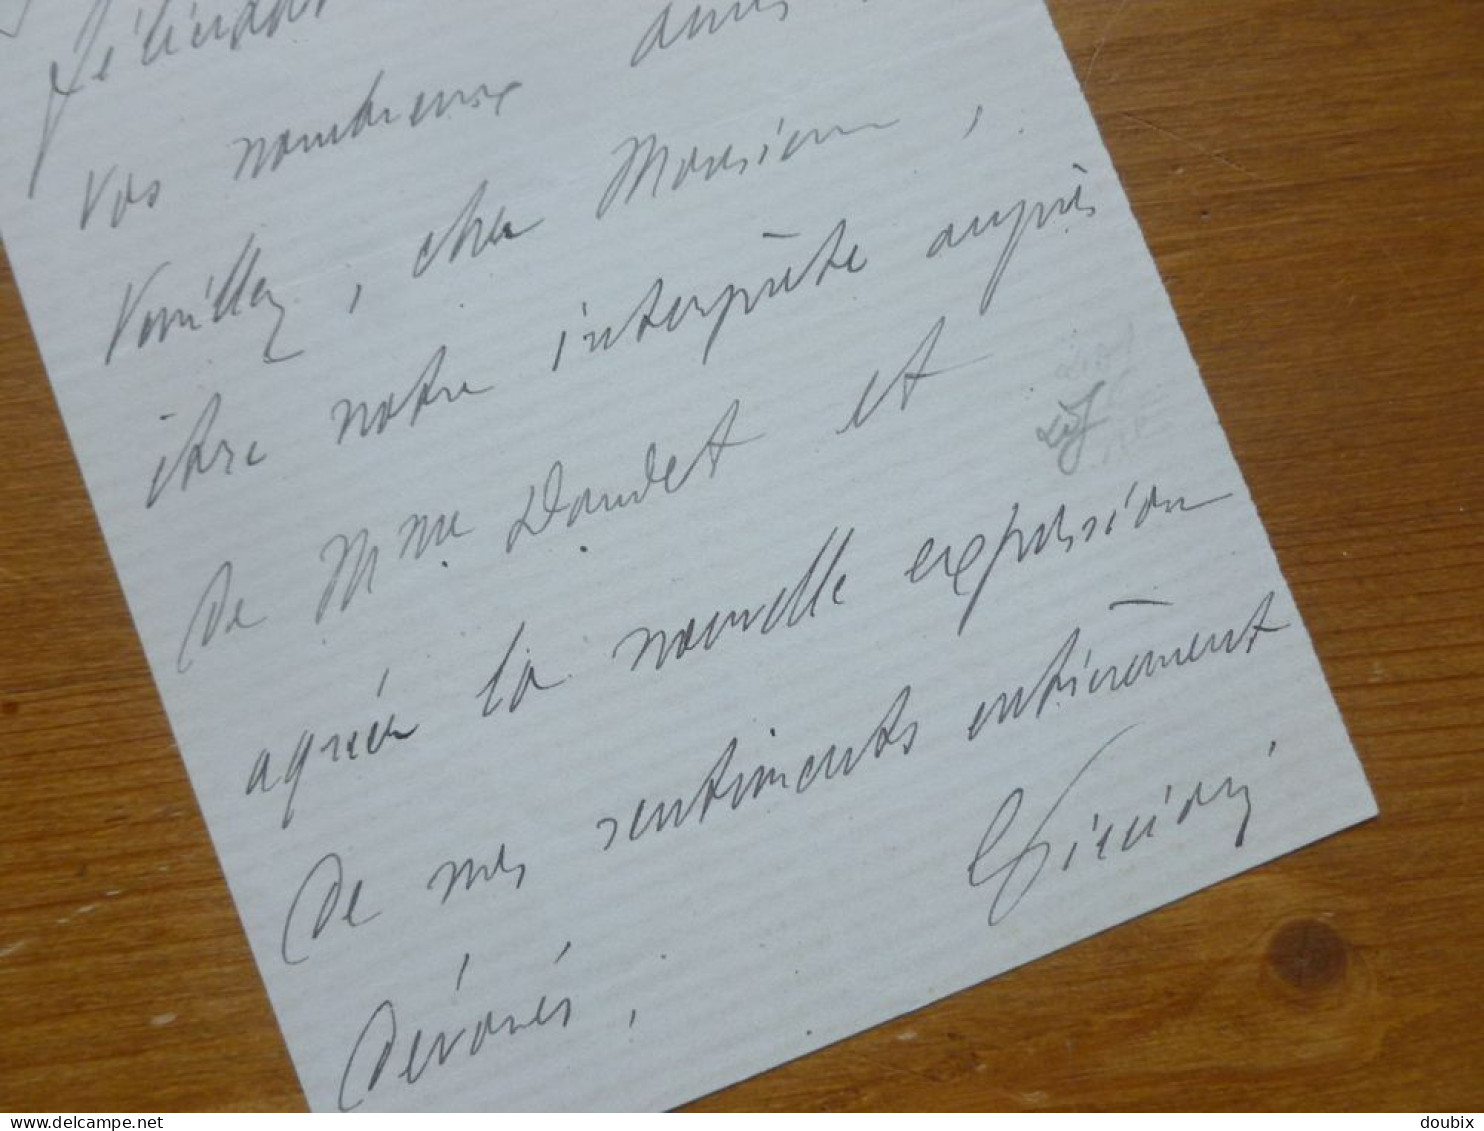 vos nombreux amis
Veuillez, cher Monsieur,
être notre interprète auprès
de Mme Daudet et
agréer la nouvelle expression
de mes sentiments entièrement
dévoués.
doubix